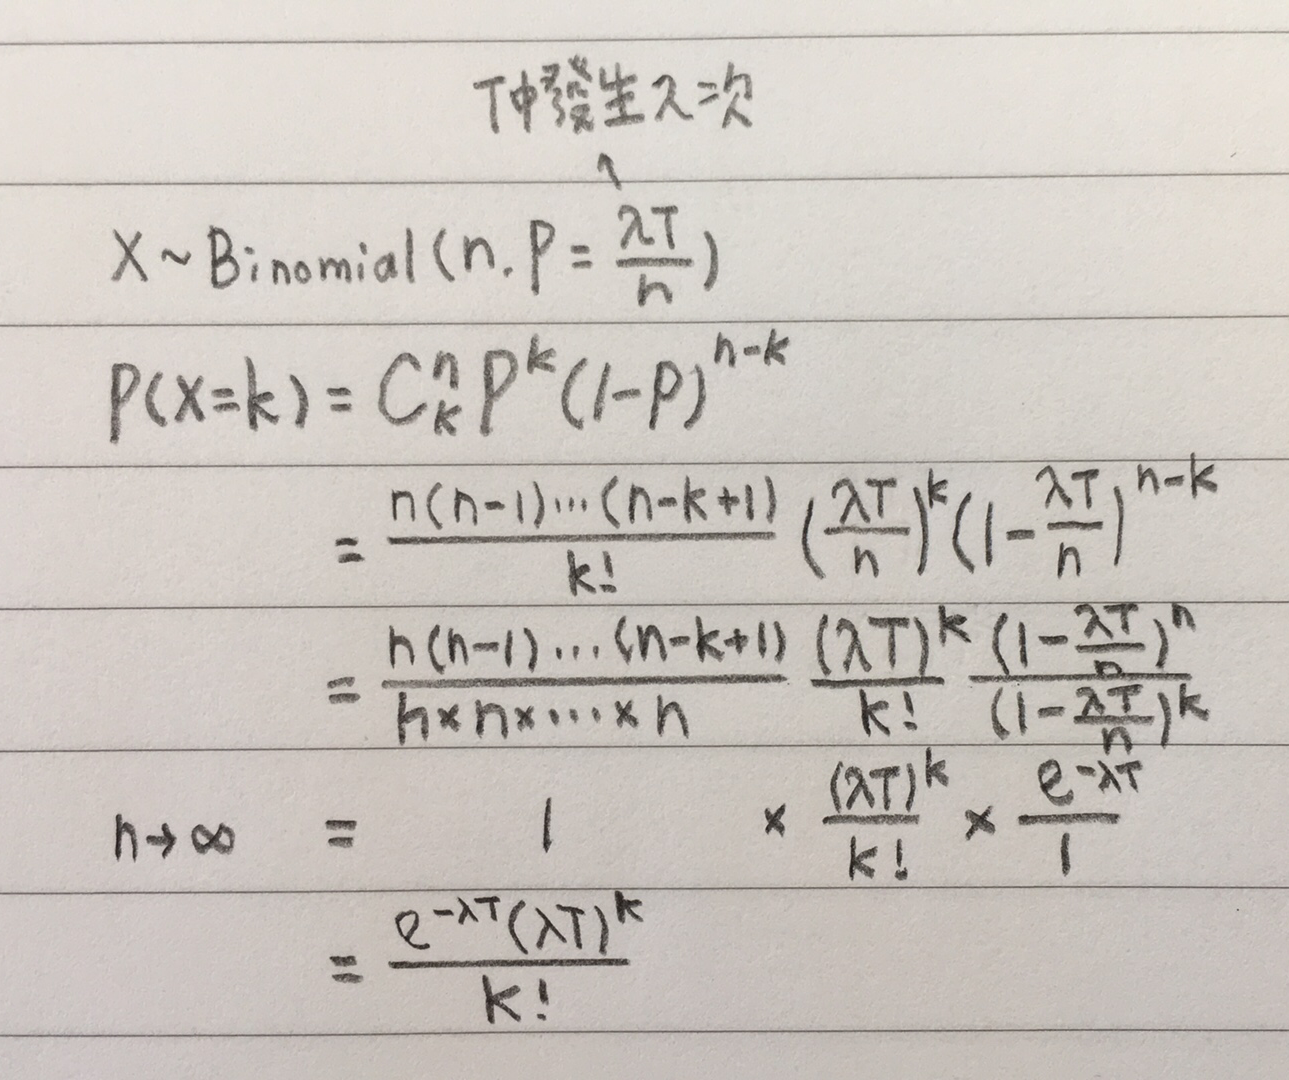 T中發生λ次
↑
X ~ Binomial (n. P = λT/n)
P(X=k) = C^n_k P^k (1-P)^{n-k}
= n(n-1)…(n-k+1)/k! (λT/n)^k (1-λT/n)^{n-k}
= n(n-1)…(n-k+1)/n×n×…×n (λT)^k/k! (1-λT/n)^n/(1-λT/n)^k
n→∞ = 1 × (λT)^k/k! × e^{-λT}/1
= e^{-λT}(λT)^k/k!